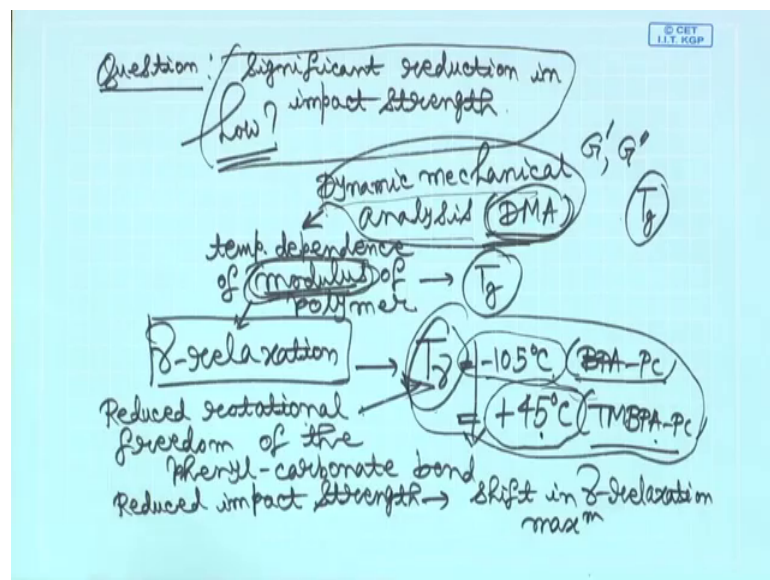 © CET
I.I.T. KGP
Question: Significant reduction in
impact strength.
How?
G', G"
Dynamic mechanical
analysis (DMA)
Tg
temp. dependence
of modulus of → Tg
polymer
γ-relaxation → Tγ = -105°C (BPA-PC)
= +45°C (TMBPA-PC)
Reduced rotational
freedom of the
phenyl-carbonate bond
Reduced impact strength → shift in γ-relaxation
maxᵐ